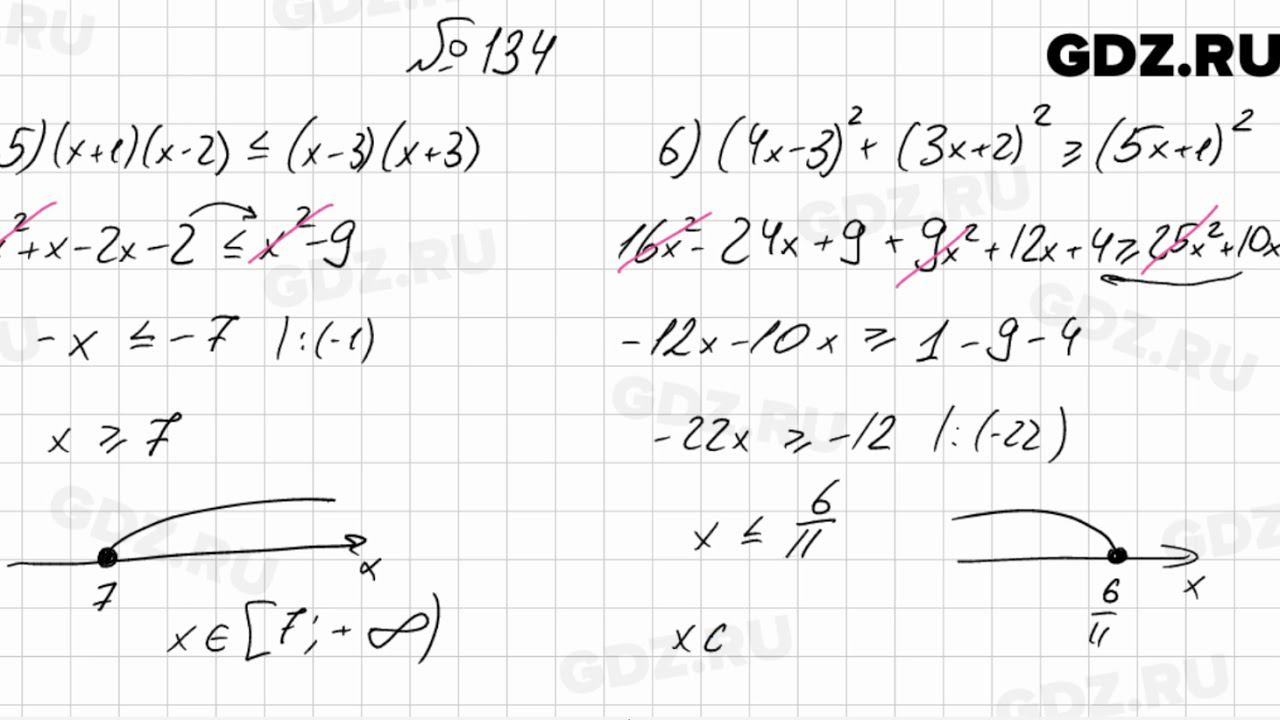 № 134
GDZ.RU
5) (x+1)(x-2) ≤ (x-3)(x+3)
x²+x-2x-2 ≤ x²-9
-x ≤ -7 |:(-1)
x ≥ 7
7
x
x ∈ [7; +∞)
6) (4x-3)² + (3x+2)² ≥ (5x+1)²
16x²-24x+9+9x²+12x+4 ≥ 25x²+10x
-12x-10x ≥ 1-9-4
-22x ≥ -12 |:(-22)
x ≤ 6/11
6/11
x
x c